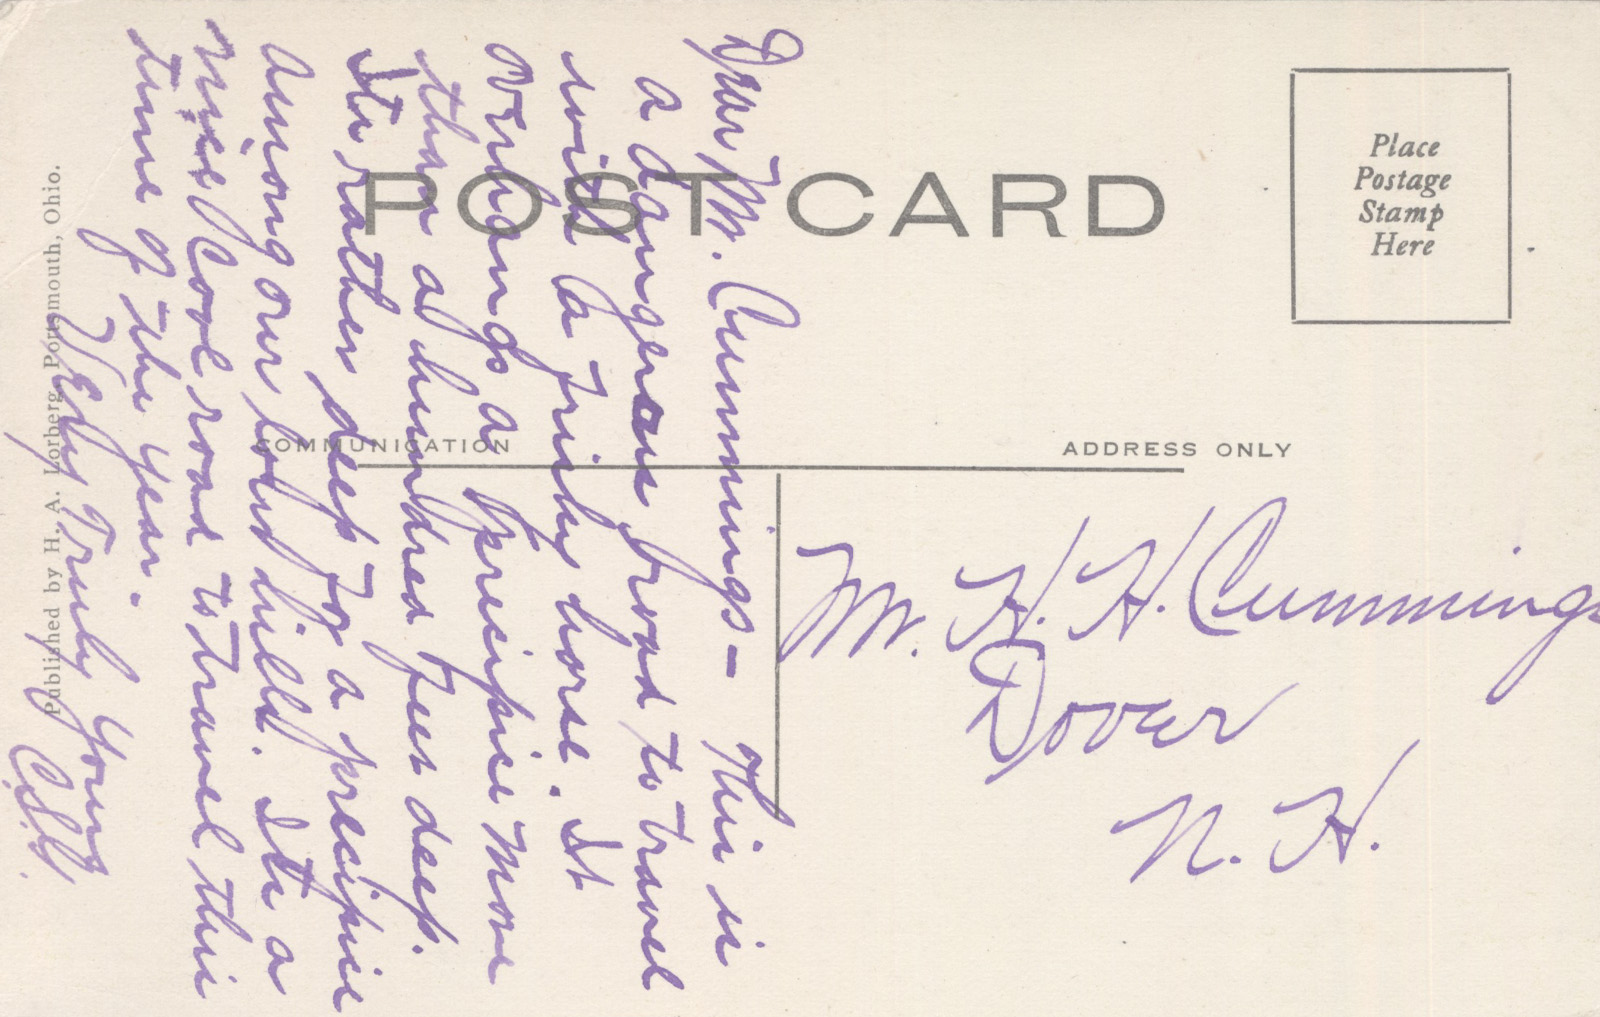 POST CARD
Place
Postage
Stamp
Here
COMMUNICATION
ADDRESS ONLY
Published by H. A. Lorberg, Portsmouth, Ohio.
Dear Mr. Cummings - This is
a dangerous road to travel
with a frisky horse. It
overhangs a precipice more
than a hundred feet deep.
Its rather deep for a precipice
among our low hills. Its a
nice cool road to travel this
time of the year.
Very Truly Yours
Mr. H. H. Cummings
Dover
N. H.